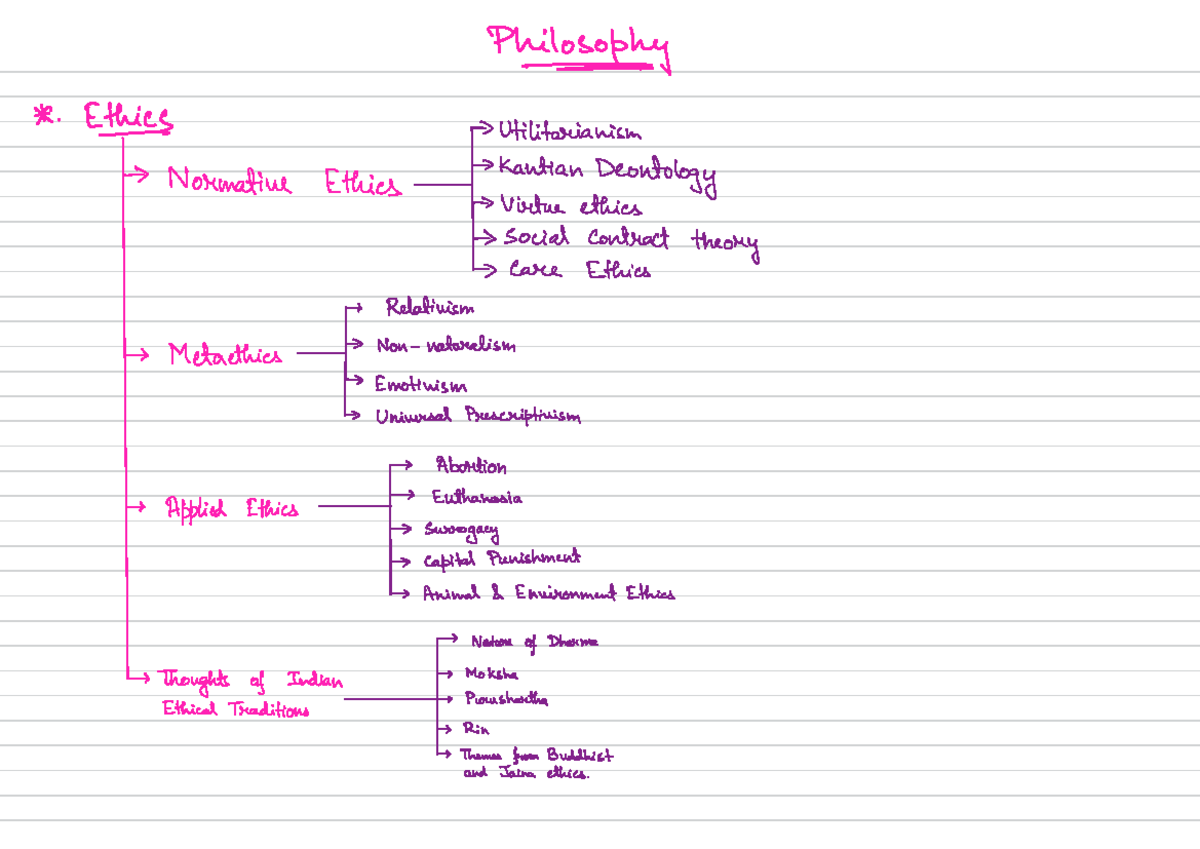 Philosophy
*. Ethics
Normative Ethics
Utilitarianism
Kantian Deontology
Virtue ethics
Social Contract theory
Care Ethics
Metaethics
Relativism
Non-naturalism
Emotivism
Universal Prescriptivism
Applied Ethics
Abortion
Euthanasia
Surrogacy
Capital Punishment
Animal & Environment Ethics
Thoughts of Indian
Ethical Traditions
Nature of Dharma
Moksha
Purushartha
Rin
Themes from Buddhist
and Jaina ethics.